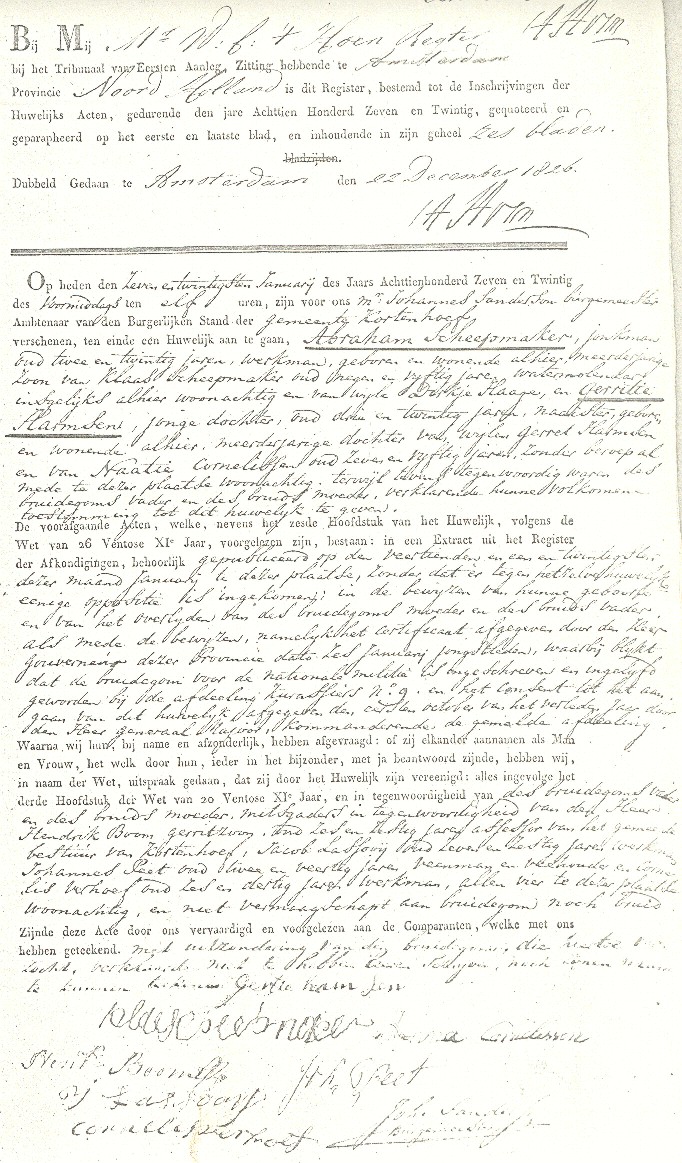 Bij Mij Mr W. C. 't Hoen Regter
bij het Tribunaal van Eersten Aanleg, Zitting hebbende te Amsterdam
Provincie Noord Holland is dit Register, bestemd tot de Inschrijvingen der
Huwelijks Acten, gedurende den jare Achttien Honderd Zeven en Twintig, gequoteerd en
geparapheerd op het eerste en laatste blad, en inhoudende in zijn geheel Zes bladen.
bladzijden.
Dubbeld Gedaan te Amsterdam den 22 December 1826.
Op heden den Zeven en twintigsten Januarij des Jaars Achttienhonderd Zeven en Twintig
des Voormiddags ten elf uren, zijn voor ons Mr Johannes Sanderson burgemeester
Ambtenaar van den Burgerlijken Stand der gemeente Kortenhoef,
verschenen, ten einde een Huwelijk aan te gaan, Abraham Scheepmaker, jonkman
oud twee en twintig jaren, werkman, geboren en wonende alhier, meerderjarige
zoon van Klaas Scheepmaker oud negen en vyftig jaren, watermolenaar
insgelijks alhier woonachtig en van wyle Dirkje Haage, en Gerritie
Harmsen, jonge dochter, oud drie en twintig jaren, naaister, geboren
en wonende alhier, meerderjarige dochter van wylen Gerret Harmsen
en van Naatie Cornelissen oud Zeven en vyftig jaren, zonder beroep al
mede te dezer plaatse woonachtig. terwijl tegenwoordig waren des
bruidegoms vader en des bruids moeder, verklarende hunne volkomene
toestemming tot dit huwelyk te geven.
De voorafgaande Acten, welke, nevens het zesde Hoofdstuk van het Huwelijk, volgens de
Wet van 26 Ventose XIe Jaar, voorgelezen zijn, bestaan: in een Extract uit het Register
der Afkondigingen, behoorlijk gepubliceerd op den veertienden en een en twintigsten
dezer maand Januarij te dezer plaatse, zonder dat er tegen hetzelve huwelijk
eenige oppositie is ingekomen; in de bewyzen van hunne geboorte
en van het overlyden van des bruidegoms moeder en des bruids vader,
als mede de bewyzen, namelyk het certificaat afgegeven door den Heer
Gouverneur dezer Provincie dato Zes Januarij jongstleden, waarbij blykt
dat de bruidegom voor de nationale militie is ingeschreven en ingelyfd
geworden bij de afdeeling Kurassiers No. 9. en het consent tot het aan
gaan van dit huwelyk afgegeven den october van het verleden jaar door
den Heer Generaal kommanderende de gemelde afdeeling.
Waarna wij hun, bij name en afzonderlijk, hebben afgevraagd: of zij elkander aannamen als Man
en Vrouw, het welk door hun, ieder in het bijzonder, met ja beantwoord zijnde, hebben wij,
in naam der Wet, uitspraak gedaan, dat zij door het Huwelijk zijn vereenigd: alles ingevolge het
derde Hoofdstuk der Wet van 20 Ventose XIe Jaar, en in tegenwoordigheid van des bruidegoms vader
en des bruids moeder, mitsgaders in tegenwoordigheid van den Heer
Hendrik Boom gerritzoon, oud Zes en Zestig jaren assessor van het gemeente
bestuur van Kortenhoef, Jacob Lasschuij oud Zeven en Zestig jaren werkman
Johannes Peet oud twee en veertig jaren veenman en veehouder en Corne
lis verhoef oud Zes en dertig jaren werkman, allen vier te dezer plaatse
woonachtig, en niet vermaagschapt aan bruidegom noch bruid
Zijnde deze Acte door ons vervaardigd en voorgelezen aan de Comparanten, welke met ons
hebben geteekend. met uitzondering van den bruidegom, die hiertoe ver
zocht, verklaarde niet te hebben leeren schryven, noch zynen naam
te kunnen teekenen Gerritie Harmsen
klaas Scheepmaker Cornelissen
Hendk Boom Gz Joh. Peet
cornelis verhoef Joh. Sanderson